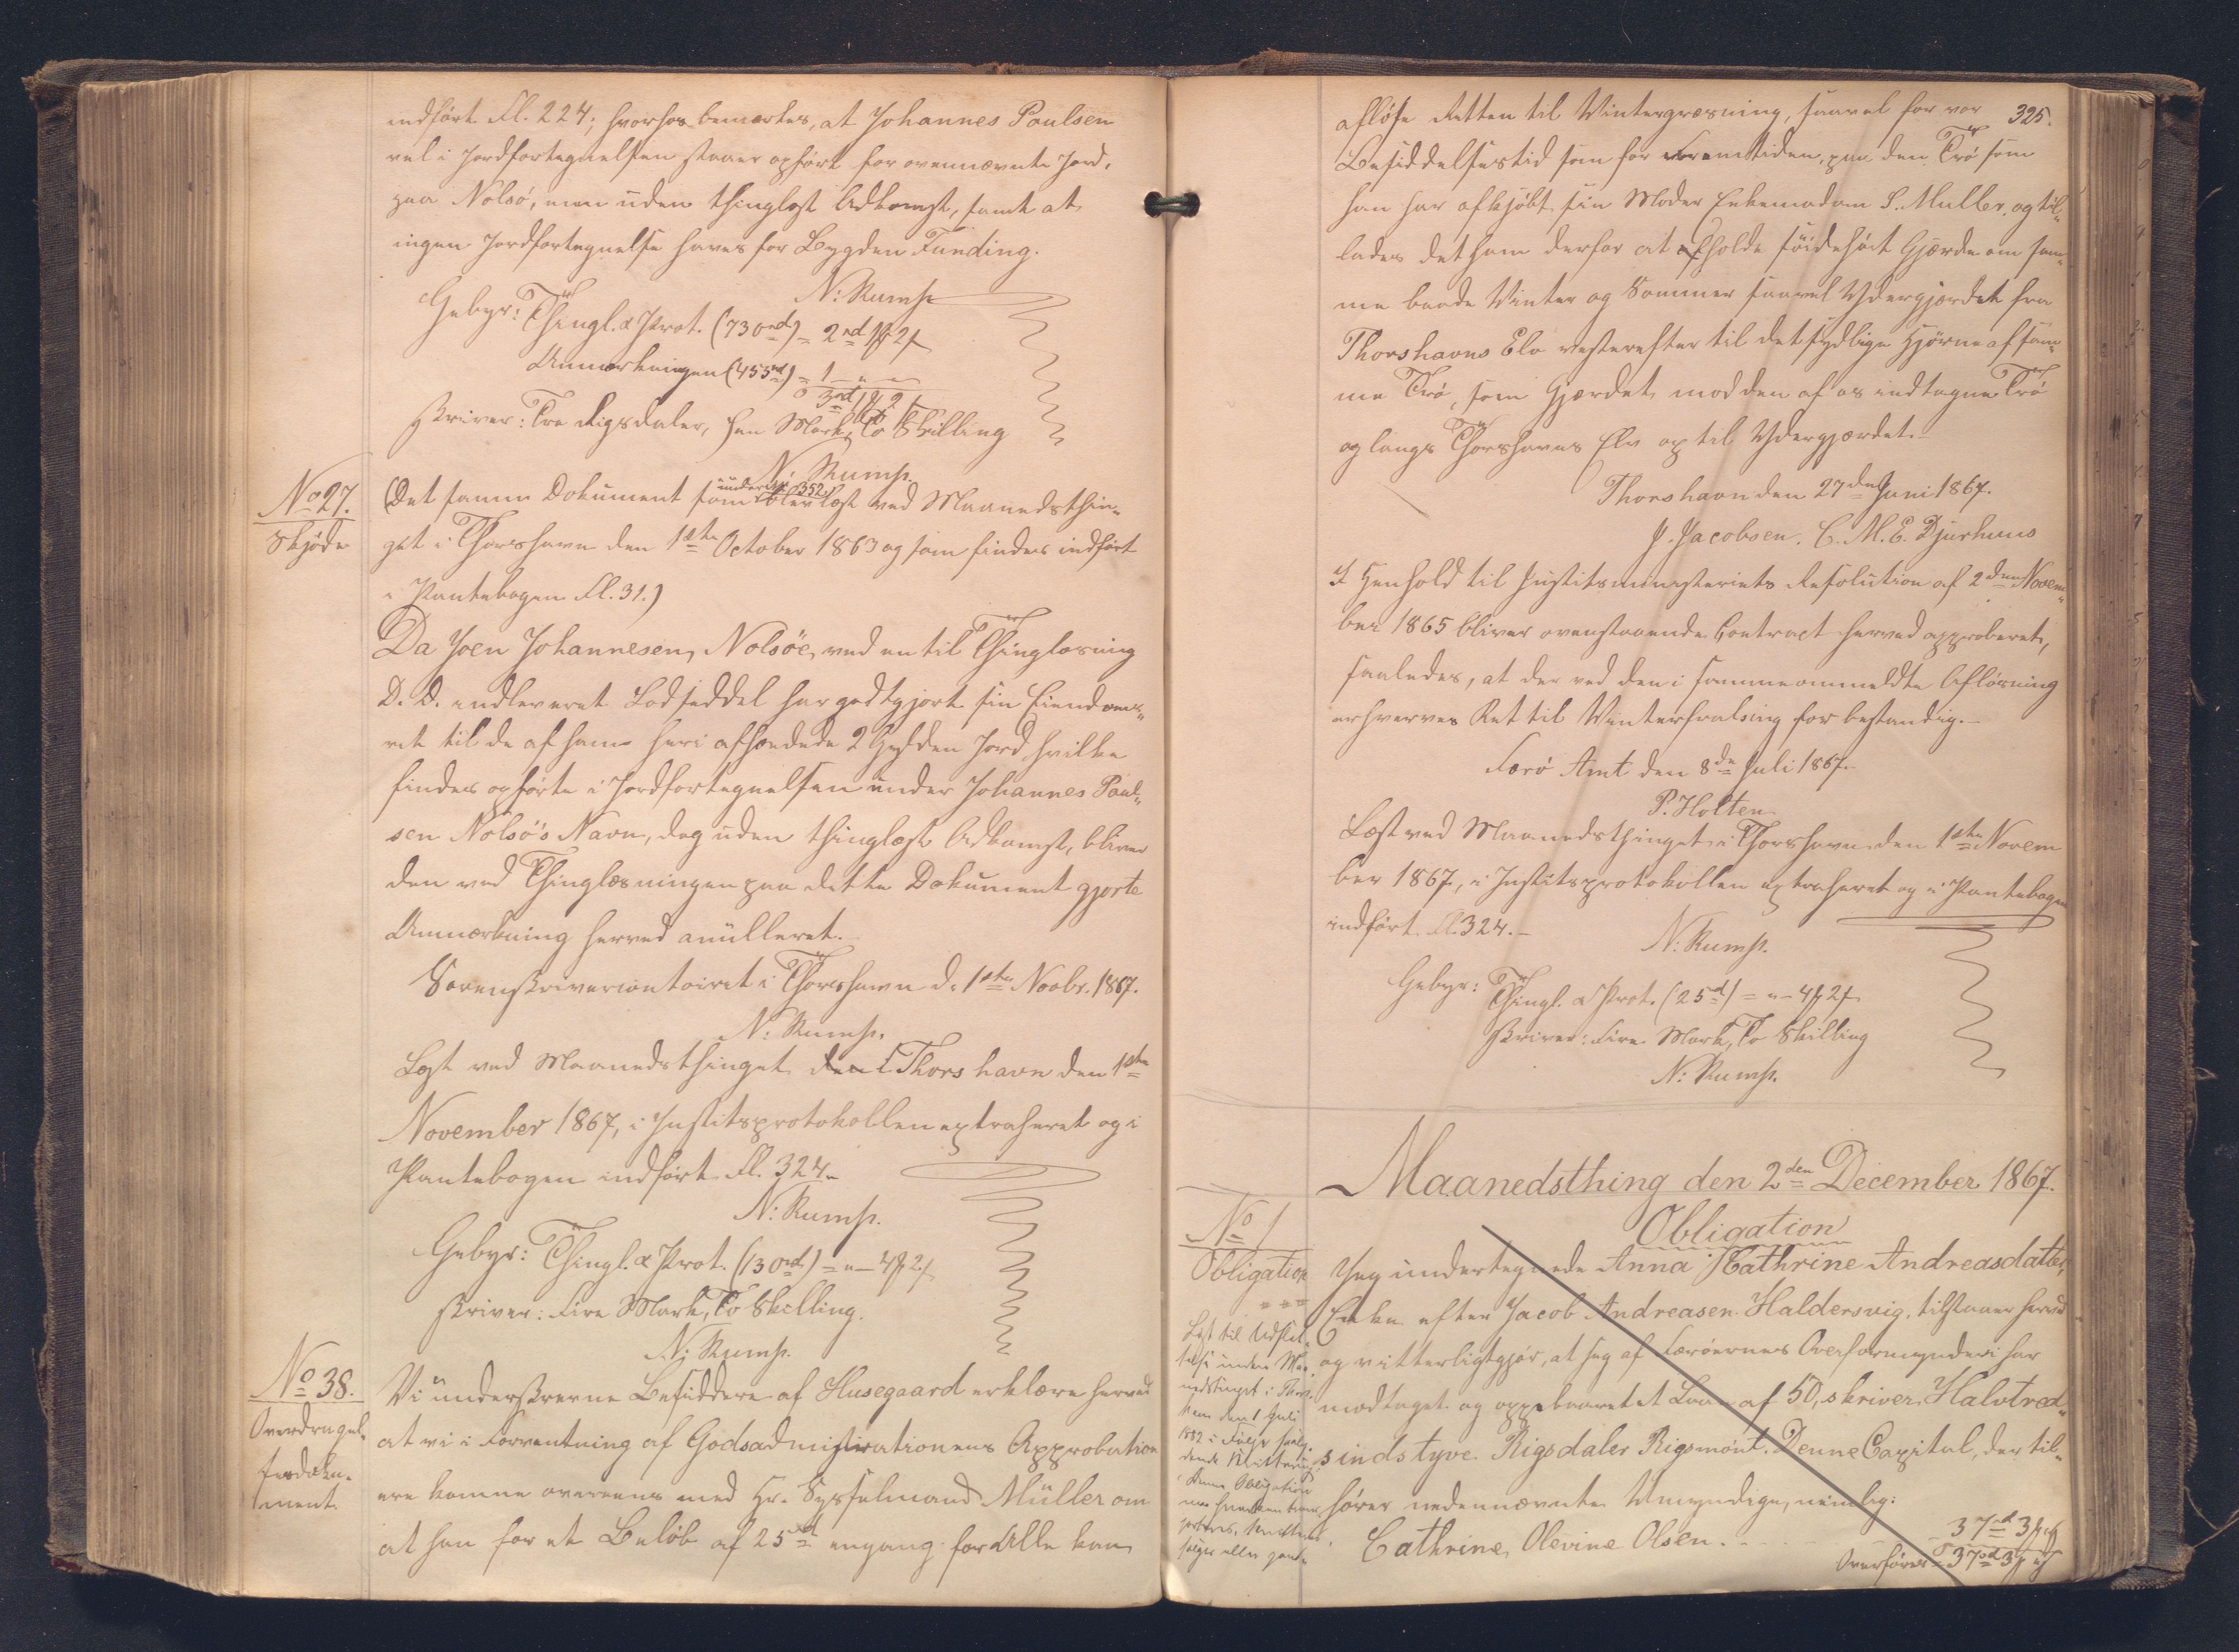 indført Fl. 224; hvorhos bemærkes, at Johannes Poulsen
vel i Jordfortegnelsen staaer opført for ovennævnte Jord,
paa Nolsö, men uden thinglæst Adkomst, samt at
ingen Jordfortegnelse haves for Bygden Funding.
N: Rump
Gebyr: Thingl. & Prot. (730 rd) = 2 rd 1 ß 2 ſ
Anmærkningen (455 rd) = 1 " "
3 rd 1 ß 2 ſ
skriver: Tre Rigsdaler, een Mark, To Skilling
N. Rump.
No 27.
Skjøde
(Det samme Dokument som under No 352 blev læst ved Maanedsthin-
get i Thorshavn den 1ste October 1863 og som findes indført
i Pantebogen Fl. 31.)
Da Joen Johannesen, Nolsöe, ved en til Thinglæsning
D. D. indleveret Lodseddel har godtgjort sin Eiendoms-
ret til de af ham heri afhændede 2 Gylden Jord, hvilke
findes opførte i Jordfortegnelsen under Johannes Poul-
sen Nolsö's Navn, dog uden thinglæst Adkomst, bliver
den ved Thinglæsningen paa dette Dokument gjorte
Anmærkning herved anülleret.
Sorenskrivercontoiret i Thorshavn d. 1ste Novbr. 1867.
N: Rump.
Læst ved Maanedsthinget den i Thorshavn den 1ste
November 1867, i Justitsprotokollen extraheret og i
Pantebogen indført Fl. 324.
N: Rump.
Gebyr: Thingl. & Prot. (130 rd) = " 4 ß 2 ſ
skriver: Fire Mark, To Skilling.
N: Rump.
No 38.
Overdragel-
sesdoku-
ment.
Vi underskrevne Besiddere af Husegaard erklære herved
at vi i Forventning af Godsadministrationens Approbation
ere komne overeens med Hr. Sysselmand Müller om
at han for et Beløb af 25 rd engang for Alle kan
325.
afløse Retten til Vintergræsning, saavel for vor
Besiddelsestid som for Fremtiden, paa den Trö som
han har afkjøbt sin Moder Enkemadam S. Muller, og til-
lades det ham derfor at afholde søidehöit Gjærde om sam-
me baade Vinter og Sommer saavel Ydergjærdet fra
Thorshavns Elv vesterefter til det sydlige Hjørne af sam-
me Trö, som Gjærdet mod den af os indtagne Trö
og langs Thorshavns Elv op til Ydergjærdet.
Thorshavn den 27de Juni 1867.
J. Jacobsen. C. M. E. Djurhuus
I Henhold til Justitsministeriets Resolution af 2den Novem-
ber 1865 bliver ovenstaaende Contract herved approberet,
saaledes, at der ved den i samme ommeldte Afløsning
erhverves Ret til Vinterfralsing for bestandig.
Færö Amt den 8de Juli 1867.
P. Holten
Læst ved Maanedsthinget i Thorshavn den 1ste Novem
ber 1867, i Justitsprotokollen extraheret og i Pantebogen
indført Fl. 324.
N: Rump.
Gebyr: Thingl. & Prot. (25 rd) = " 4 ß 2 ſ
skriver: Fire Mark, To Skilling
N: Rump.
Maanedsthing den 2den December 1867.
No 1
Obligation
Obligation
Jeg undertegnede Anna Cathrine Andreasdatter,
Enke efter Jacob Andreasen Haldersvig, tilstaaer herved
og vitterligtgjør, at jeg af Færöernes Overformynderi har
modtaget og oppebaaret et Laan af 50, skriver Halvtred-
sindstyve Rigsdaler Rigsmönt. Denne Capital, der til-
hører nedennævnte Umyndige, nemlig:
Cathrine Olevine Olsen. . . . 37 rd 3 ß
Overføres 37 rd 3 ß
Læst til Udslet-
telse under Maa-
nedstinget i Thors-
havn den 1 Juli
1882 i Følge
Denne Obligation